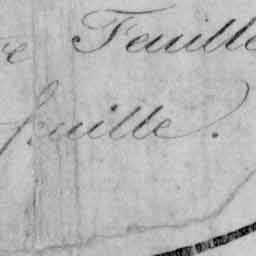 e Feuille
feuille.